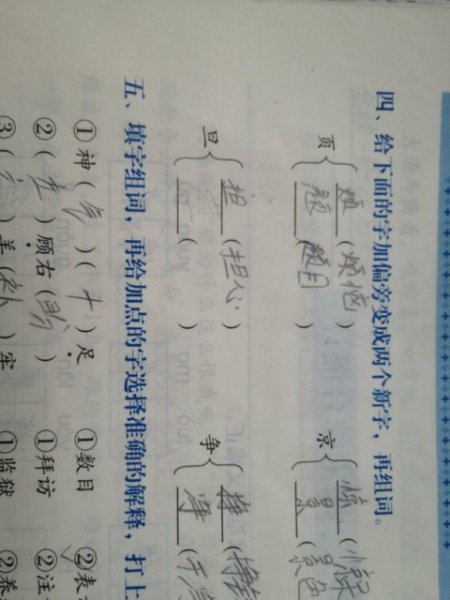 四、给下面的字加偏旁变成两个新字，再组词。
页 烦 (烦恼) 京 惊 (惊
题目 ) 景 (景色
旦 担 (担心) 争 挣 (挣
( ) 净 (干
五、填字组词，再给加点的字选择准确的解释，打上
①神(气)(十)足 ①数目 ②表
②(左)顾右(盼) ①拜访 ②注
③( )羊(补)牢 ①监狱 ②养